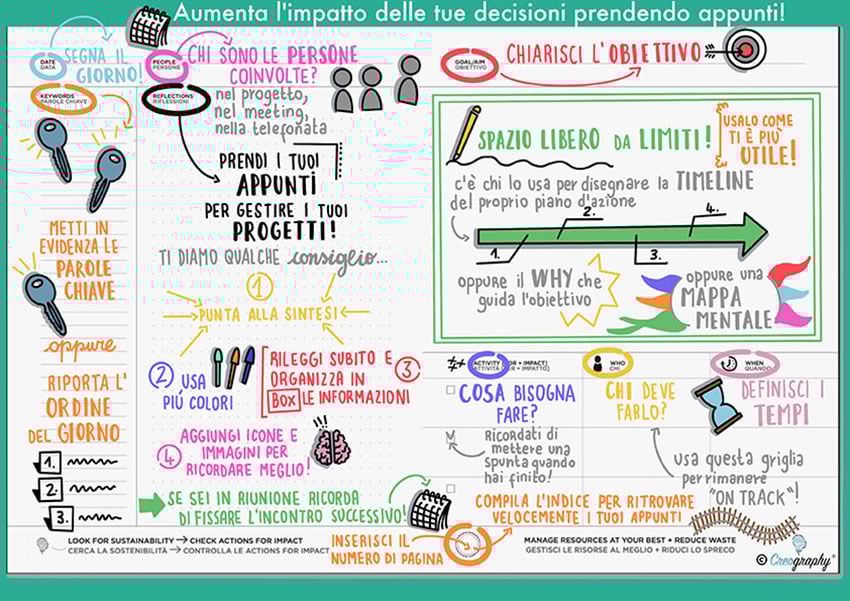 Aumenta l'impatto delle tue decisioni prendendo appunti!
DATE
DATA
SEGNA IL
GIORNO!
PEOPLE
PERSONE
CHI SONO LE PERSONE
COINVOLTE?
nel progetto,
nel meeting,
nella telefonata
GOAL/AIM
OBIETTIVO
CHIARISCI L'OBIETTIVO
KEYWORDS
PAROLE CHIAVE
METTI IN
EVIDENZA LE
PAROLE
CHIAVE
oppure
RIPORTA L'
ORDINE
DEL GIORNO
1.
2.
3.
REFLECTIONS
RIFLESSIONI
PRENDI I TUOI
APPUNTI
PER GESTIRE I TUOI
PROGETTI!
TI DIAMO QUALCHE consiglio...
1
PUNTA ALLA SINTESI
2 USA
PIÚ COLORI
RILEGGI SUBITO E
ORGANIZZA IN
BOX LE INFORMAZIONI
3
4
AGGIUNGI ICONE E
IMMAGINI PER
RICORDARE MEGLIO!
SE SEI IN RIUNIONE RICORDA
DI FISSARE L'INCONTRO SUCCESSIVO!
SPAZIO LIBERO DA LIMITI!
USALO COME
TI È PIÙ
UTILE!
c'è chi lo usa per disegnare la TIMELINE
del proprio piano d'azione
1.
2.
3.
4.
oppure il WHY che
guida l'obiettivo
oppure una
MAPPA
MENTALE
ACTIVITY (FOR + IMPACT)
ATTIVITÀ (PER + IMPATTO)
WHO
CHI
WHEN
QUANDO
COSA BISOGNA
FARE?
Ricordati di
mettere una
spunta quando
hai finito!
CHI DEVE
FARLO?
DEFINISCI I
TEMPI
usa questa griglia
per rimanere
"ON TRACK"!
COMPILA L'INDICE PER RITROVARE
VELOCEMENTE I TUOI APPUNTI
INSERISCI IL
NUMERO DI PAGINA
LOOK FOR SUSTAINABILITY → CHECK ACTIONS FOR IMPACT
CERCA LA SOSTENIBILITÀ → CONTROLLA LE ACTIONS FOR IMPACT
MANAGE RESOURCES AT YOUR BEST + REDUCE WASTE
GESTISCI LE RISORSE AL MEGLIO + RIDUCI LO SPRECO
© Creography®